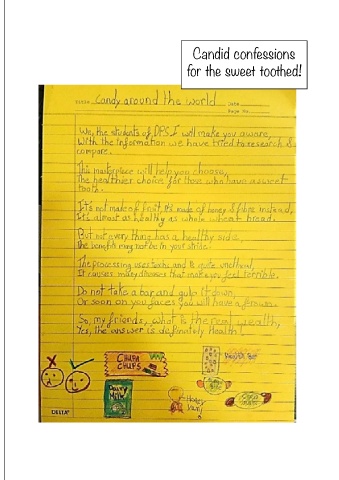 Candid confessions
for the sweet toothed!
Candy around the world
Date
Page No.
We, the students of DPS I will make you aware,
With the information we have tried to research &
compare.
This masterpiece will help you choose,
The healthier choice for those who have a sweet
tooth.
It's not made of fruit, it's made of honey & fibre instead,
It's almost as healthy as whole wheat bread.
But not every thing has a healthy side,
the benefits may not be in your stride.
The processing is and is quite unethical,
It causes many diseases that make you feel terrible.
Do not take a bar and gulp it down,
Or soon on you faces you will have a frown.
So, my friends, what is the real wealth,
Yes, the answer is definately Health!
CHUPA
CHUPS
Dairy
Milk
Honey
DELTA